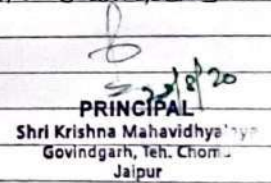 22/8/20
PRINCIPAL
Shri Krishna Mahavidhya
Govindgarh, Teh. Chom
Jaipur